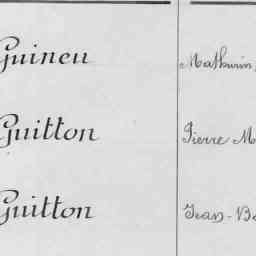 Guineu Mathurin,
Guitton Pierre M
Guitton Jean-Ba